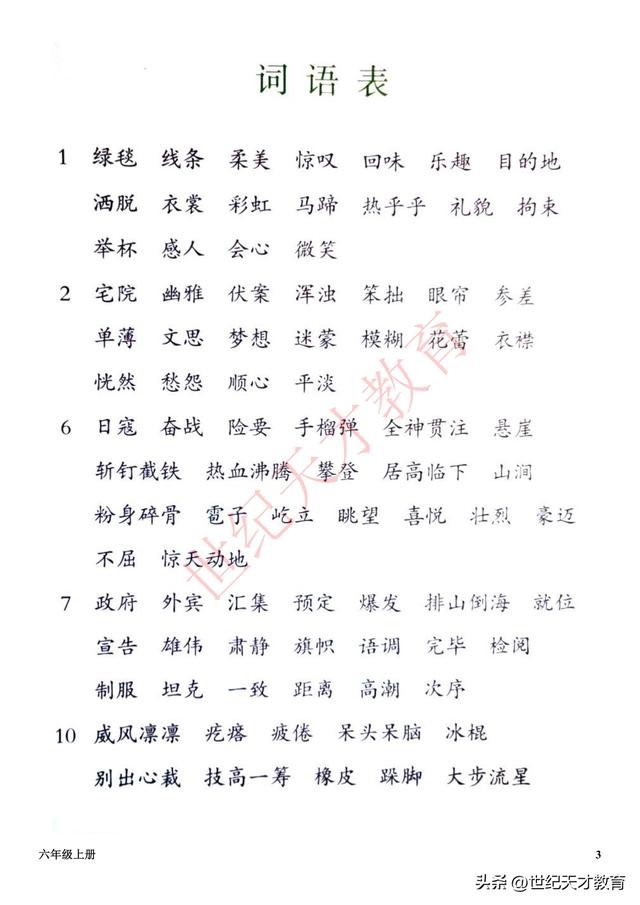 词语表
1 绿毯 线条 柔美 惊叹 回味 乐趣 目的地
洒脱 衣裳 彩虹 马蹄 热乎乎 礼貌 拘束
举杯 感人 会心 微笑
2 宅院 幽雅 伏案 浑浊 笨拙 眼帘 参差
单薄 文思 梦想 迷蒙 模糊 花蕾 衣襟
恍然 愁怨 顺心 平淡
6 日寇 奋战 险要 手榴弹 全神贯注 悬崖
斩钉截铁 热血沸腾 攀登 居高临下 山涧
粉身碎骨 雹子 屹立 眺望 喜悦 壮烈 豪迈
不屈 惊天动地
7 政府 外宾 汇集 预定 爆发 排山倒海 就位
宣告 雄伟 肃静 旗帜 语调 完毕 检阅
制服 坦克 一致 距离 高潮 次序
10 威风凛凛 疙瘩 疲倦 呆头呆脑 冰棍
别出心裁 技高一筹 橡皮 跺脚 大步流星
世纪天才教育
六年级上册 3
头条 @世纪天才教育